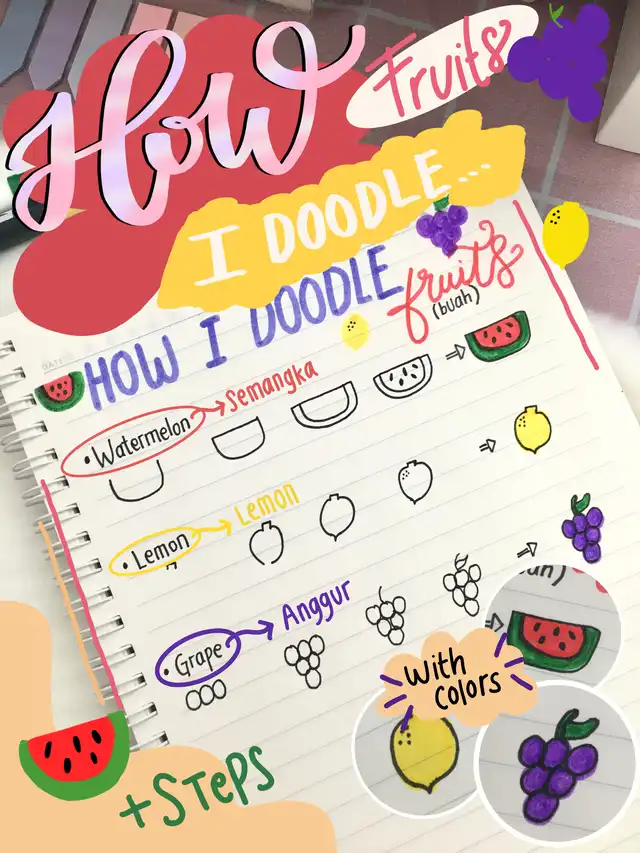 How
Fruits
I DOODLE...
DATE
HOW I DOODLE fruits
(buah)
• Watermelon → Semangka
• Lemon → Lemon
• Grape → Anggur
uah)
With
colors
+ STePS